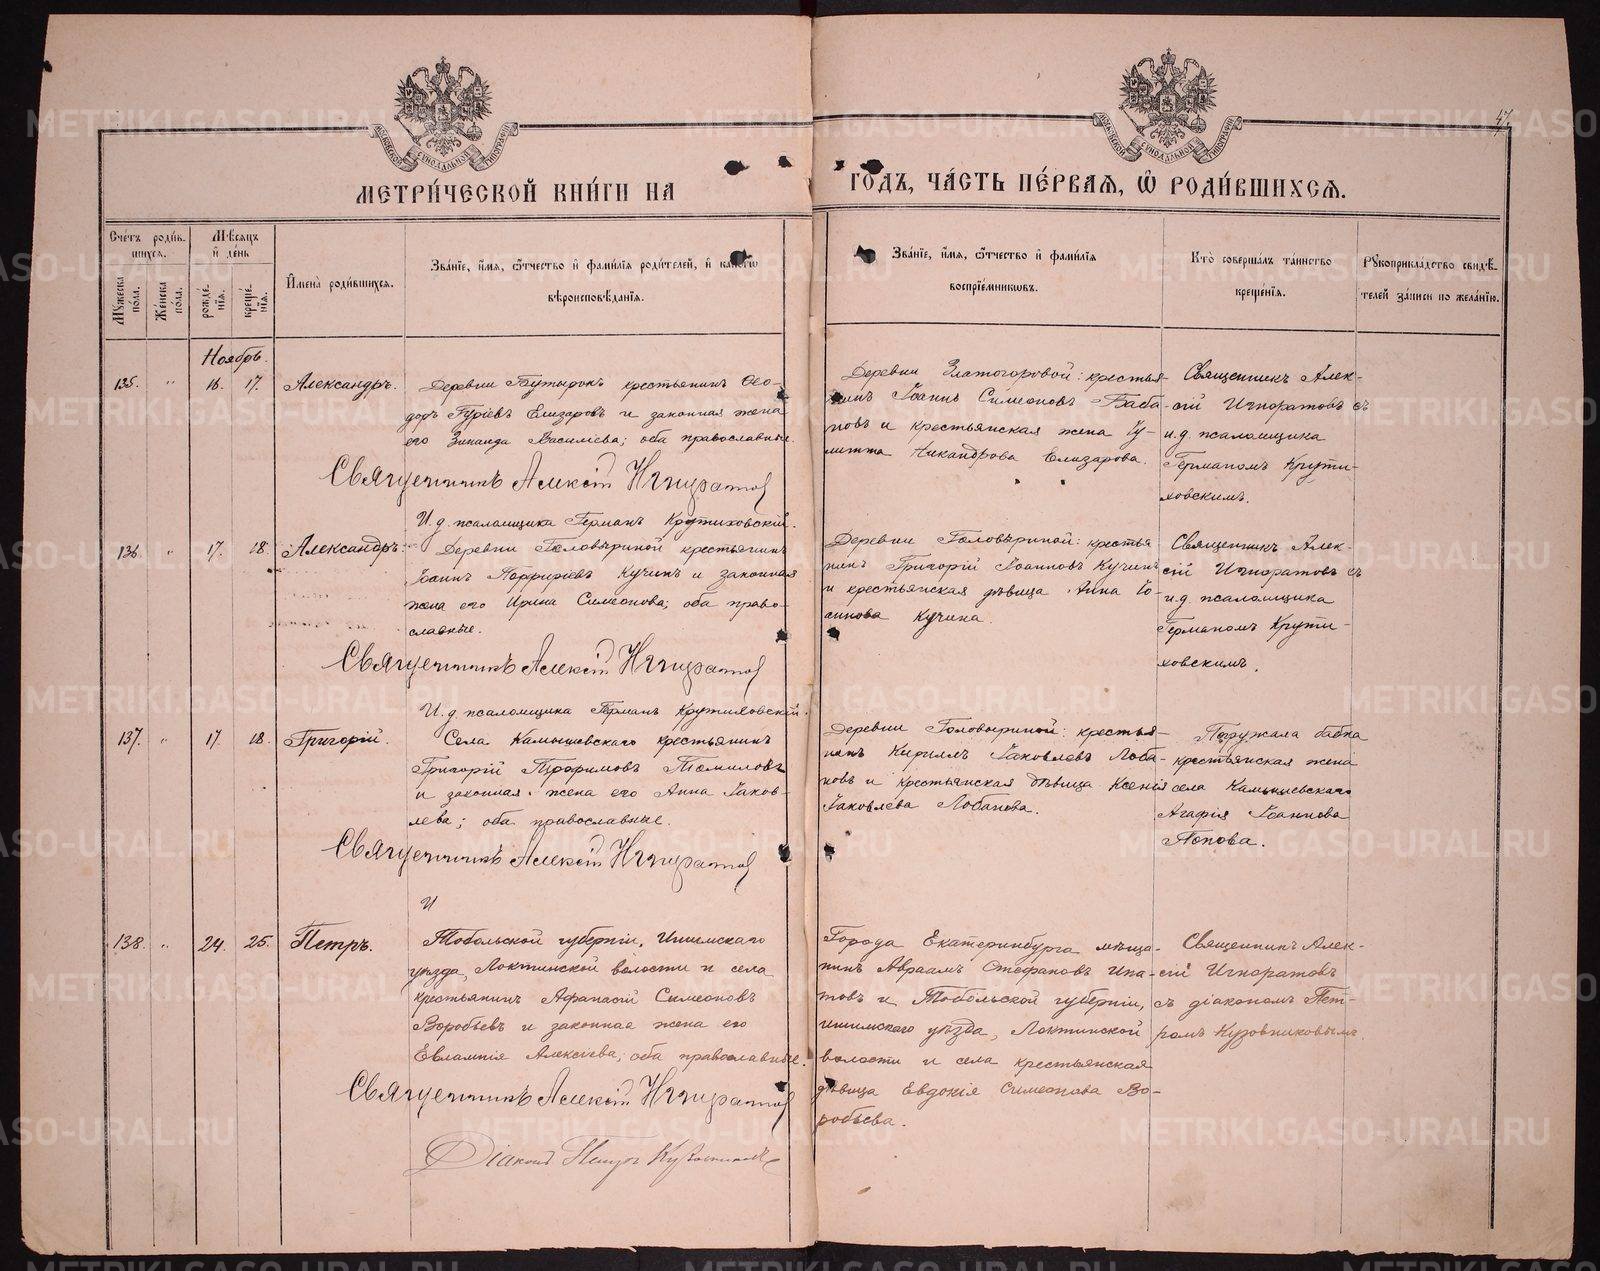 47.
МОСКОВСКОЙ СУНОДАЛЬНОЙ ТИПОГРАФІИ
МОСКОВСКОЙ СУНОДАЛЬНОЙ ТИПОГРАФІИ
МЕТРИ́ЧЕСКОЙ КНИ́ГИ НА ГО́ДЪ, ЧА́СТЬ ПЕ́РВАѦ, Ѡ РОДИ́ВШИХСѦ.
Сче́тъ роди́в-
шихся.
Мѣ́сяцъ
и де́нь
Му́жеска
по́ла.
Же́нска
по́ла.
рожде́-
нія.
креще́-
нія.
Имена̀ роди́вшихся.
Зва́ніе, и́мя, о́тчество и фами́лія роди́телей, и како́гѡ
вѣроисповѣ́данія.
Зва́ніе, и́мя, о́тчество и фами́лія
воспріе́мниковъ.
Кто̀ соверша́лъ та́инство
креще́нія.
Рукоприкла́дство свидѣ́-
телей за́писи по жела́нію.
Ноябрь.
135. " 16. 17. Александръ.
Деревни Бутырокъ крестьянинъ Ѳео-
доръ Гуріевъ Елизаровъ и законная жена
его Зинаида Василіева; оба православные.
Священникъ Алексій Игноратов
И. д. псаломщика Германъ Крутиховскій.
Деревни Златогоровой: крестья-
нинъ Іоаннъ Симеоновъ Баба-
новъ и крестьянская жена Іу-
литта Никандрова Елизарова.
Священникъ Алек-
сій Игноратовъ съ
и.д. псаломщика
Германомъ Крути-
ховскимъ.
136 " 17. 18. Александръ.
Деревни Головыриной крестьянинъ
Іоаннъ Порфиріевъ Кучинъ и законная
жена его Ирина Симеонова; оба право-
славные.
Священникъ Алексій Игноратов
И. д. псаломщика Германъ Крутиховскій.
Деревни Головыриной: крестья
нинъ Григорій Іоанновъ Кучинъ
и крестьянская дѣвица Анна Іо-
сипова Кучина.
Священникъ Алек-
сій Игноратовъ съ
и.д. псаломщика
Германомъ Крути-
ховскимъ.
137. " 17 18. Григорій.
Села Камышевскаго крестьянинъ
Григорій Трофимовъ Томиловъ
и законная жена его Анна Іаков-
лева; оба православные.
Священникъ Алексій Игноратов
И
Деревни Головыриной: крестья-
нинъ Кириллъ Іаковлевъ Лоба-
новъ и крестьянская дѣвица Ксенія
Іаковлева Лобанова.
Погружала бабка
крестьянская жена
села Камышевскаго
Агафія Іоаннова
Попова.
138. " 24. 25. Петръ.
Тобольской губерніи, Ишимскаго
уѣзда, Локтинской волости и села
крестьянинъ Афанасій Симеоновъ
Воробьевъ и законная жена его
Евлампія Алексіева; оба православные.
Священникъ Алексій Игноратов
Діаконъ Петръ Кузовниковъ
Города Екатеринбурга мѣща-
нинъ Авраамъ Стефановъ Ипа-
товъ и Тобольской губерніи,
Ишимскаго уѣзда, Локтинской
волости и села крестьянская
дѣвица Евдокія Симеонова Во-
робьева.
Священникъ Алек-
сій Игноратовъ
съ діакономъ Пет-
ромъ Кузовниковымъ.
METRIKI.GASO-URAL.RU